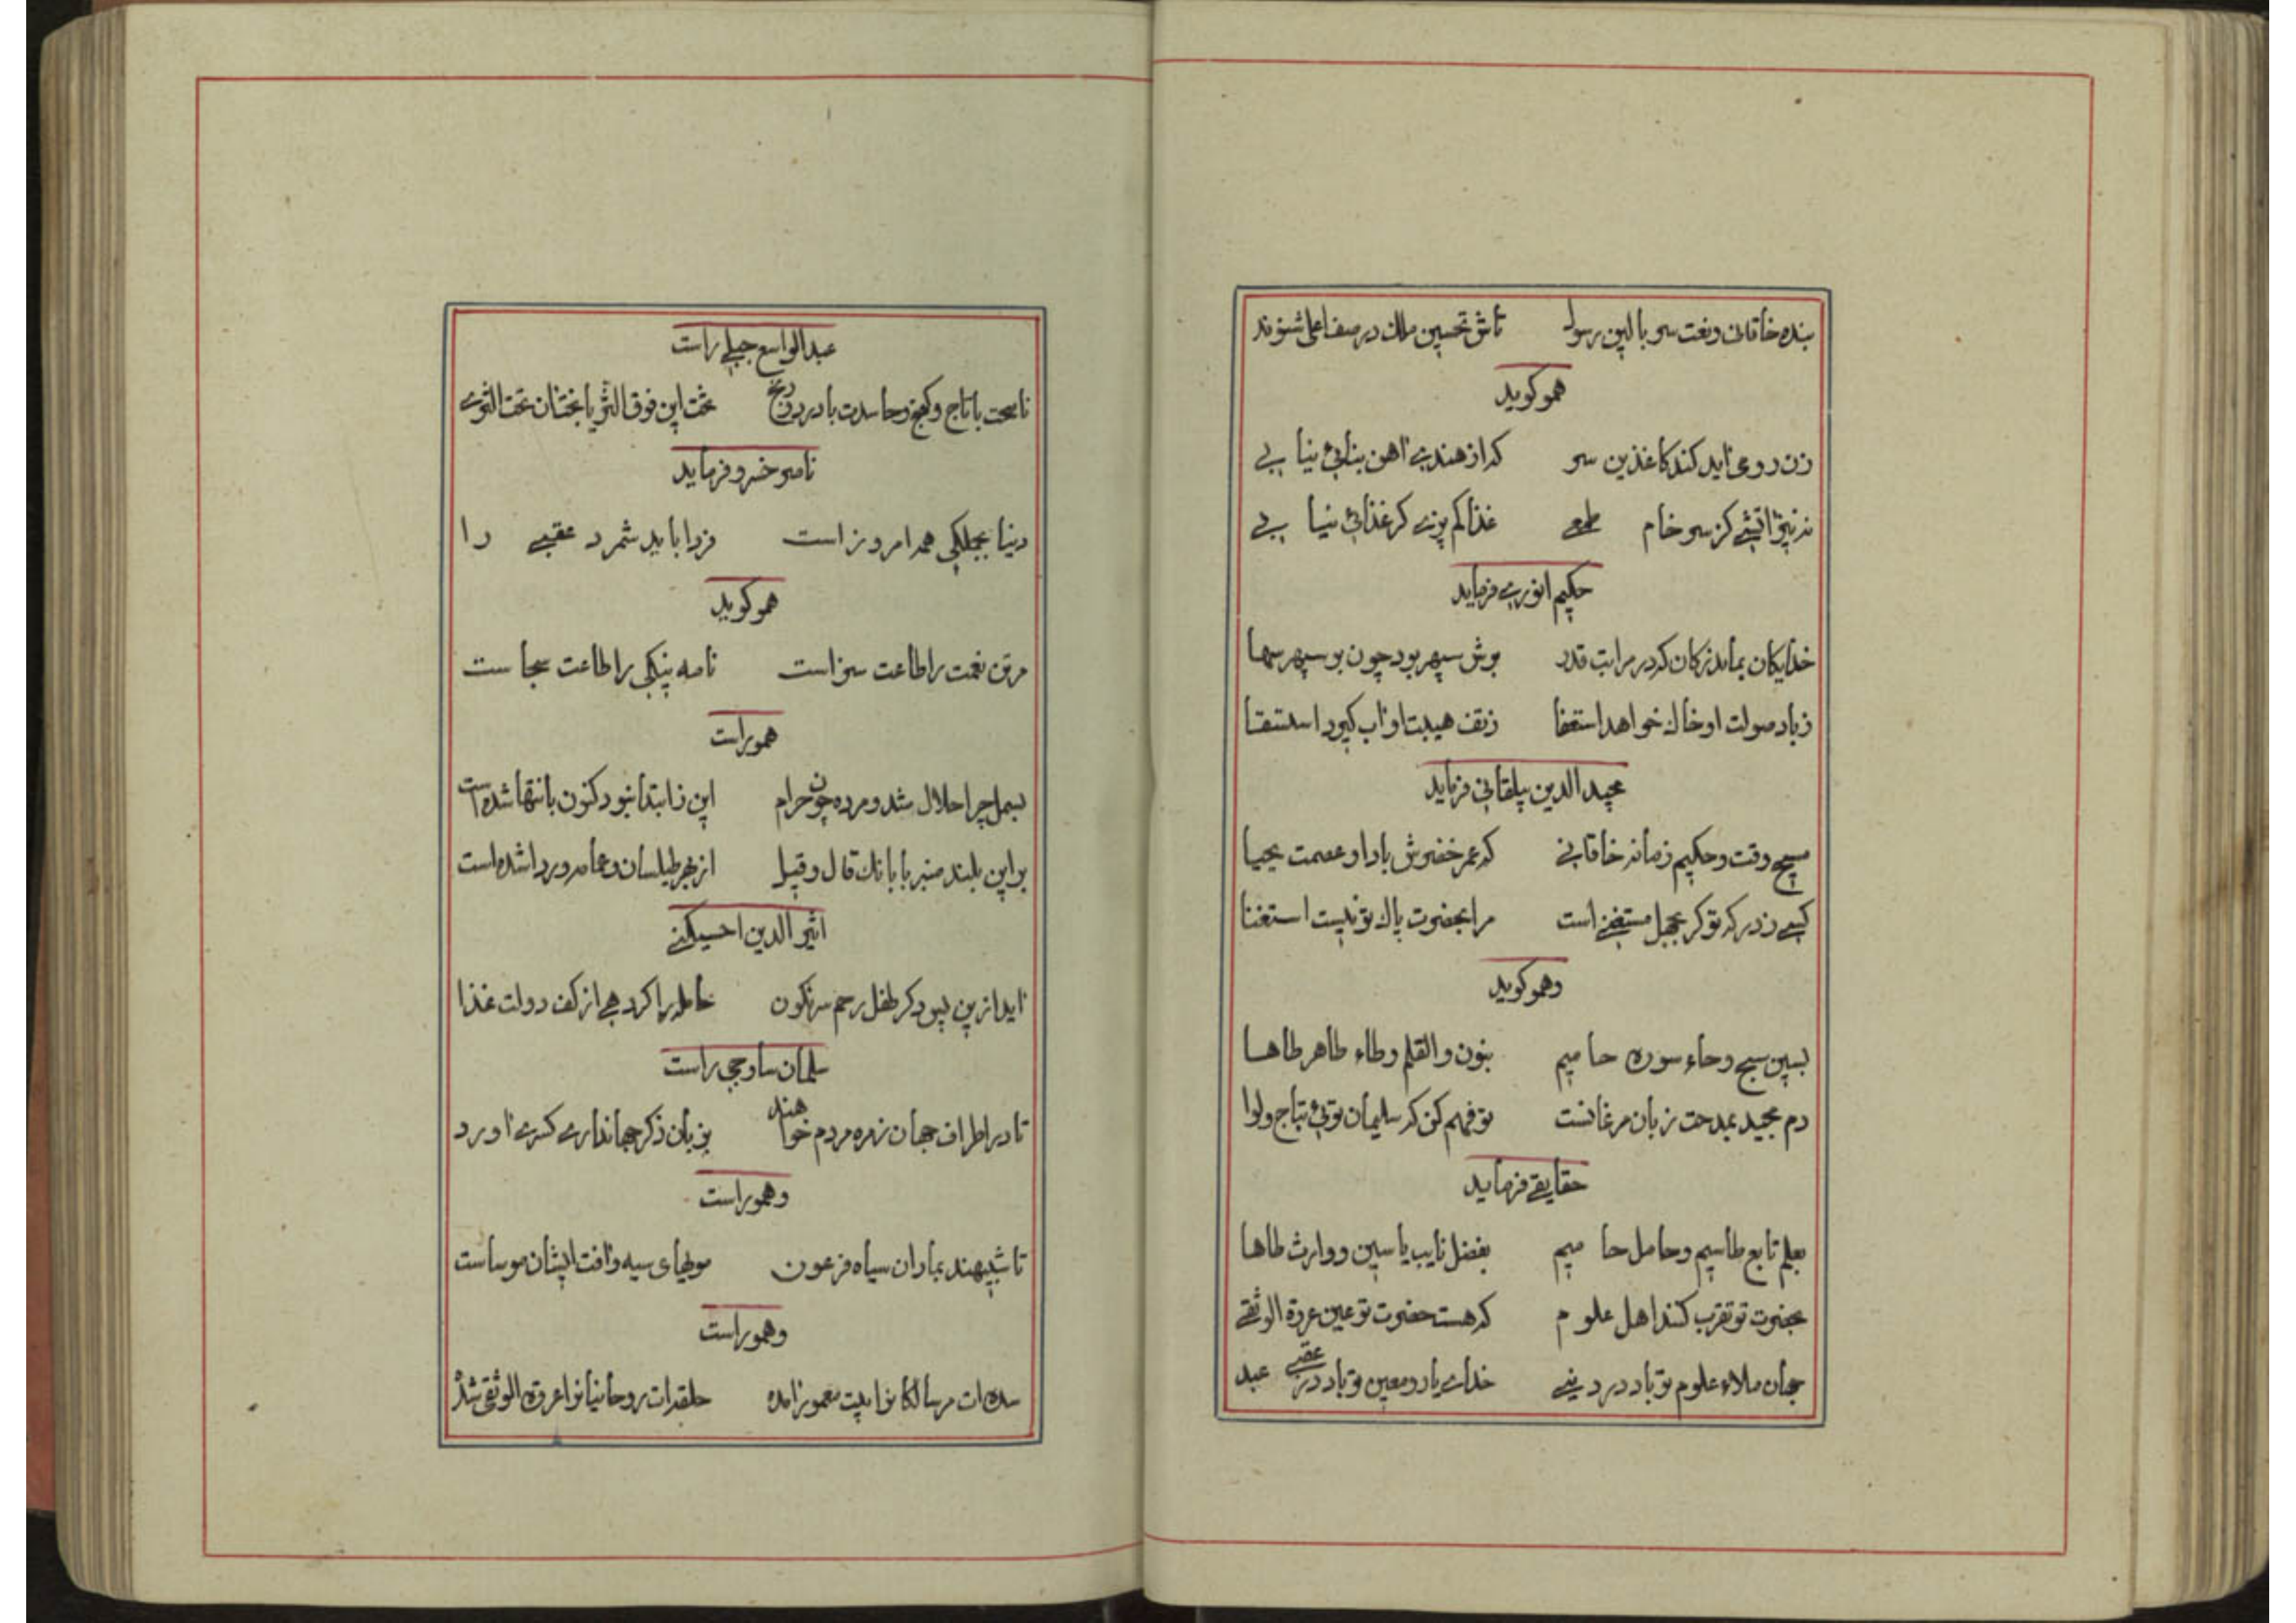 بنده خاقانی و نعت سر بالین رسول تاش تحسین ملک در صف اعلی شنوند
هموگوید
زن دوعی نماید کند کاغذین سر که از هندی اهن بنایی نیابی
نه نیخ اتشی کز سر خام طمعی غذا کم پزی کز غذائی نیابی
حکیم انوری فرماید
خدایکان بماند زکان که در مراتب قدر برش سپهر بود چون بر سپهر سها
زباد صولت او خاک خواهد استعفا زتف هیبت او اب گیرد استسقا
مجید الدین بیلقانی فرماید
مسیح وقت و حکیم زمانه خاقانی که عمر خضرش باد او عصمت یحیا
کسی ز درکه تو کر بجهل مستغنی است مرا بحضرت پاک تو نیست استغنا
وهموگوید
بسین سبح وحاء سوره حا میم بنون والقلم وطاء طاهر طاها
دم مجید بمدحت زبان مرغانست تو فهم کن که سلیمان توئی بتاج و لوا
حقایقی فرماید
بعلم تابع طاسیم وحامل حا میم بفضل نایب یاسین ووارث طاها
بحضرت تو تقرب کنند اهل علوم که هست حضرت تو عین عروة الوثقی
جهان ملاء علوم تو باد در دینی خدای یار ومعین تو باد در عقبی عبد
عبدالواسع جبلی راست
ناصحت با تاج و گنج وحاسدت با درد ورنج تخت این فوق الثریا تختان تحت الثری
ناصر خسرو فرماید
دنیا بجملکی همه امروز است فردا باید شمرد عقبی را
هموگوید
مرتن نعمت را طاعت سزاست نامه نیکی را طاعت سحاست
هموراست
بسمل چرا حلال شد ومرده چون حرام این زابتدا نبود کنون بانتها شده است
بر این بلند منبر با بانک قال و قیل از بهر طیلسان وعمامه وردا شده است
اثیر الدین اخسیکتی
اید از پن پود کر طفل رحم سرنکون حامله را کرد هی از کف دولت غذا
سلمان ساوجی راست
تا در اطراف جهان زمره مردم خواهند بزبان ذکر جهانداری کسری اورد
وهموراست
تا شبیهند بماران سیاه فرعون مویهای سیه وافت ایشان موساست
وهموراست
سده ات مر سالکانرا بیت معمور امده حلقه ات روحانیانرا عروة الوثقی شده